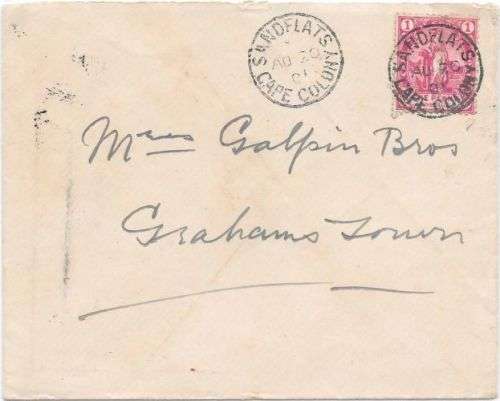 SANDFLATS
AU 29
01
CAPE COLONY
1 1
SANDFLATS
AU 29
01
CAPE COLONY
Mess Galpin Bros
Grahams Town